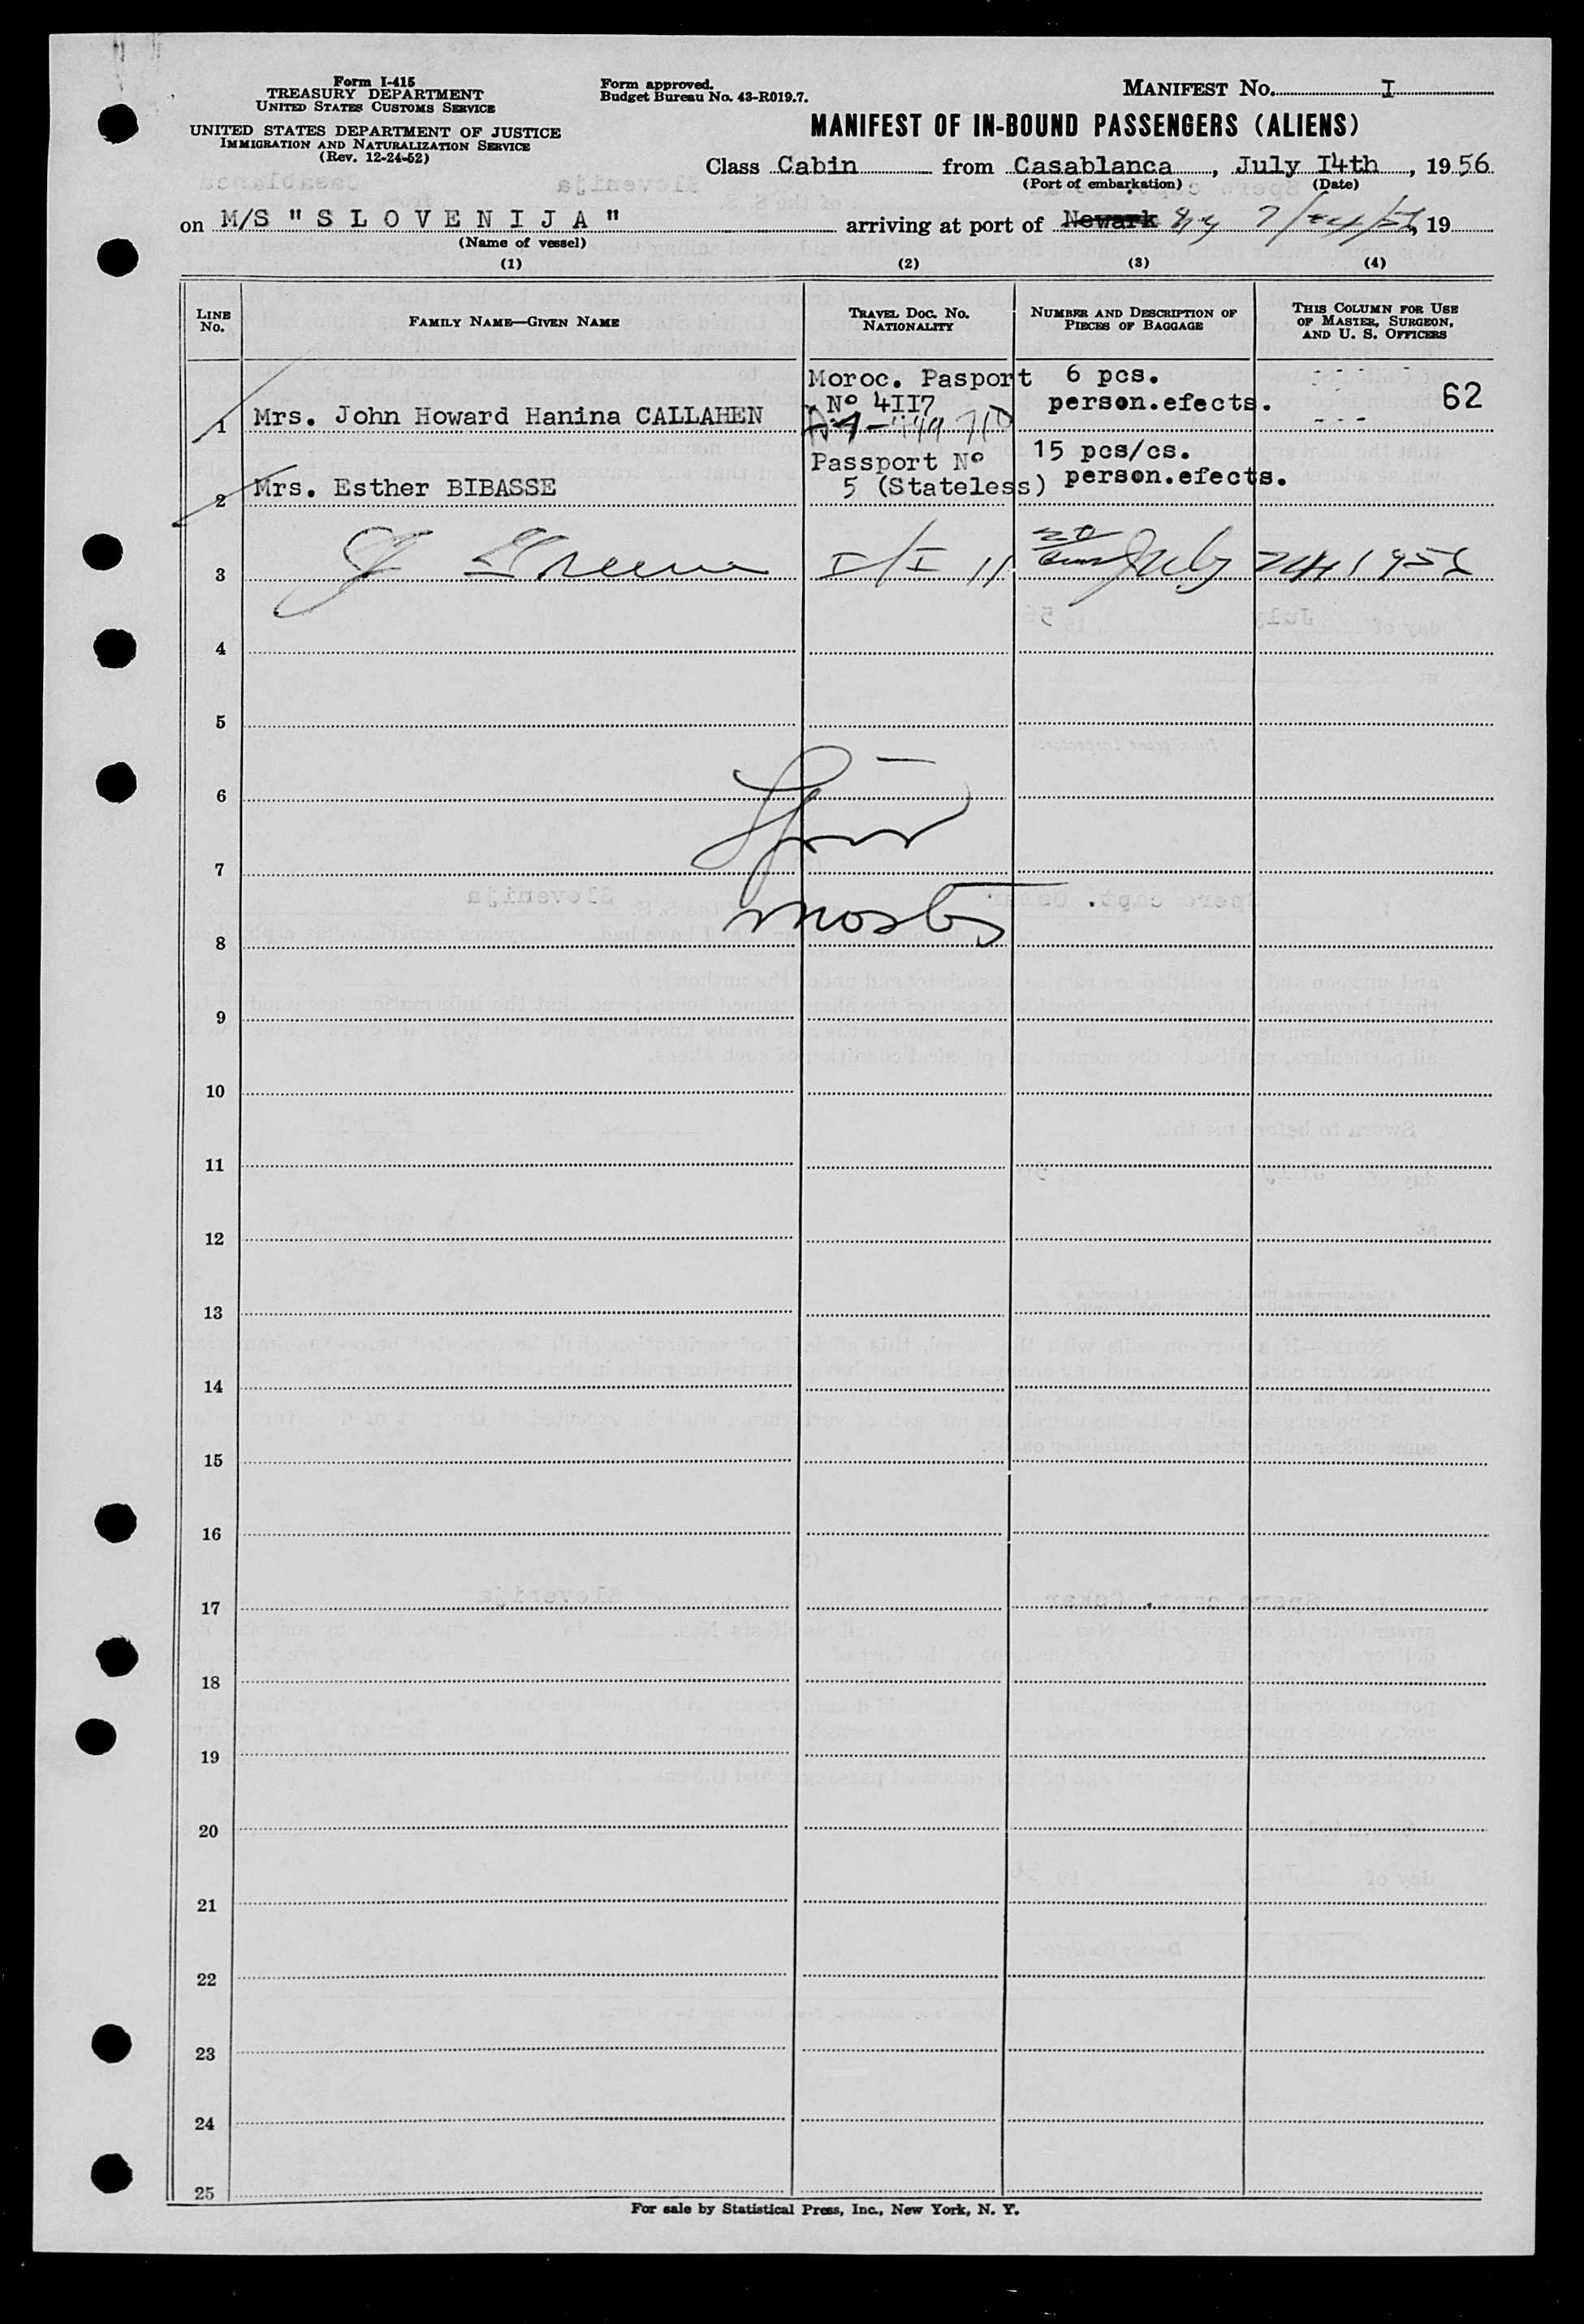 Form I-415
TREASURY DEPARTMENT
UNITED STATES CUSTOMS SERVICE
UNITED STATES DEPARTMENT OF JUSTICE
IMMIGRATION AND NATURALIZATION SERVICE
(Rev. 12-24-52)
Form approved.
Budget Bureau No. 43-R019.7.
MANIFEST No. I
MANIFEST OF IN-BOUND PASSENGERS (ALIENS)
Class Cabin from Casablanca, July I4th, 1956
(Port of embarkation) (Date)
on M/S " S L O V E N I J A " arriving at port of Newark 19
(Name of vessel)
(1) (2) (3) (4)
LINE No. FAMILY NAME—GIVEN NAME TRAVEL DOC. No. NATIONALITY NUMBER AND DESCRIPTION OF PIECES OF BAGGAGE THIS COLUMN FOR USE OF MASTER, SURGEON, AND U. S. OFFICERS
Moroc. Pasport 6 pcs.
1 Mrs. John Howard Hanina CALLAHEN Nº 4II7 person.efects. 62
Passport Nº 15 pcs/cs.
2 Mrs. Esther BIBASSE 5 (Stateless) person.efects.
3 J Greene I/I 11 July 24 1956
4
5
6
7
8
9
10
11
12
13
14
15
16
17
18
19
20
21
22
23
24
25
For sale by Statistical Press, Inc., New York, N. Y.